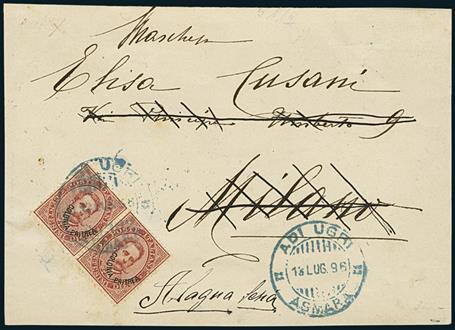 Marchesa
Elisa Cusani
Via Principe Umberto 9
Milano
ADI UGRI
13 LUG. 96
ASMARA
UGRI
COLONIA ERITREA
COLONIA ERITREA